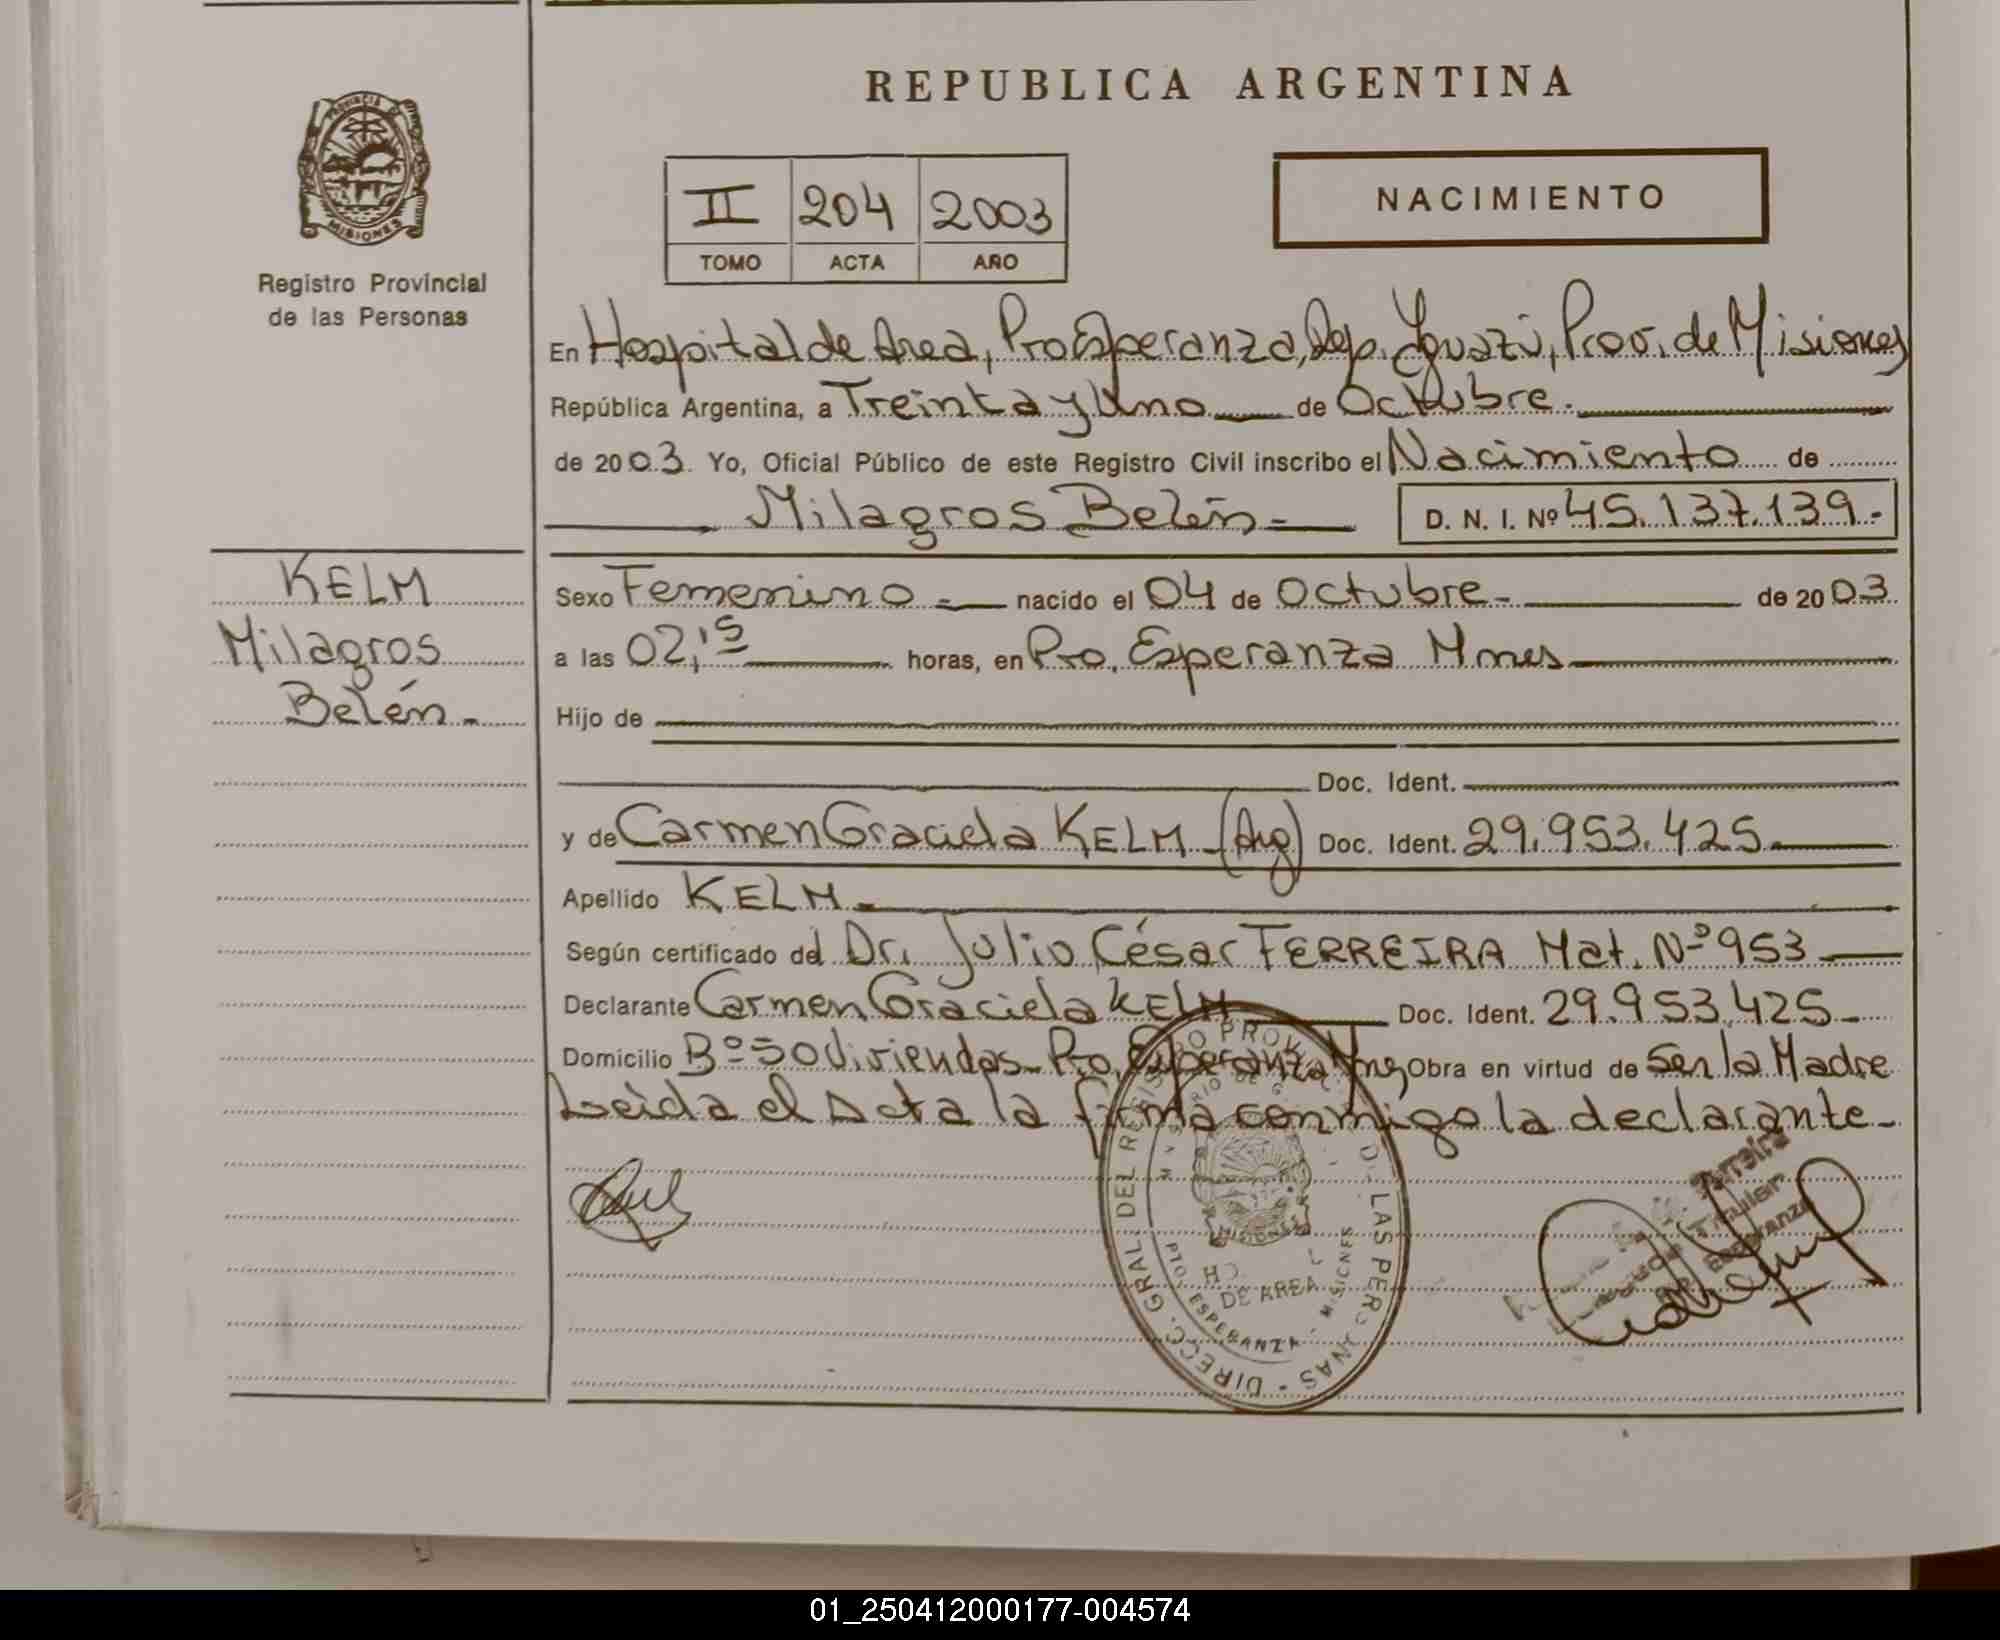 REPUBLICA ARGENTINA
PROVINCIA DE MISIONES
Registro Provincial
de las Personas
II 204 2003
TOMO ACTA AÑO
NACIMIENTO
En Hospital de Area, Pto Esperanza, Dep. Iguazú, Prov. de Misiones
República Argentina, a Treinta y Uno de Octubre.
de 2003. Yo, Oficial Público de este Registro Civil inscribo el Nacimiento de
Milagros Belén- D. N. I. Nº 45.137.139.-
KELM
Milagros
Belén.-
Sexo Femenino - nacido el 04 de Octubre- de 2003
a las 02,15 horas, en Pto. Esperanza Mnes
Hijo de
Doc. Ident.
y de Carmen Graciela KELM-(Arg) Doc. Ident. 29.953.425.
Apellido KELM.-
Según certificado del Dr. Julio César FERREIRA Mat. Nº 953
Declarante Carmen Graciela KELM Doc. Ident. 29.953.425-
Domicilio Bº 50 viviendas- Pto. Esperanza Mnes Obra en virtud de Ser la Madre
Leída el Acta la firma conmigo la declarante-
DIRECC. GRAL. DEL REGISTRO PROV. DE LAS PERSONAS
DE AREA
PTO. ESPERANZA - MISIONES
Ferreira
Titular
Esperanza
01_250412000177-004574